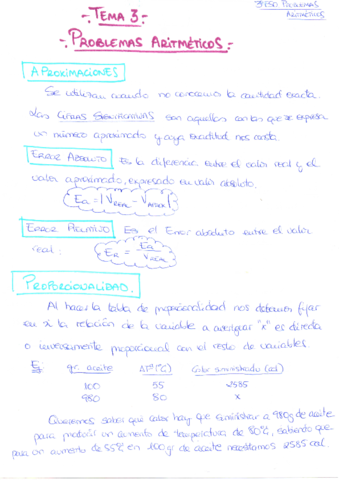 3ºESO PROBLEMAS
ARITMÉTICOS
-. TEMA 3.
-. PROBLEMAS ARITMÉTICOS.-
APROXIMACIONES
Se utilizan cuando no conocemos la cantidad exacta.
Las CIFRAS SIGNIFICATIVAS son aquellas con las que se expresa
un número aproximado y cuya exactitud nos consta.
ERROR ABSOLUTO Es la diferencia entre el valor real y el
valor aproximado, expresado en valor absoluto.
Ea = |VREAL - VAPROX|
ERROR RELATIVO Es el Error absoluto entre el valor
real: ER = Ea / VREAL
PROPORCIONALIDAD.
Al hacer la tabla de proporcionalidad nos debemos fijar
en si la relación de la variable a averiguar "x" es directa
o inversamente proporcional con el resto de variables.
Ej: gr. aceite ΔTª(ºC) Calor suministrado (cal)
100 55 2585
980 80 x
Queremos saber qué calor hay que suministrar a 980g de aceite
para producir un aumento de temperatura de 80ºC, sabiendo que
para un aumento de 55ºC en 100gr de aceite necesitamos 2585 cal.